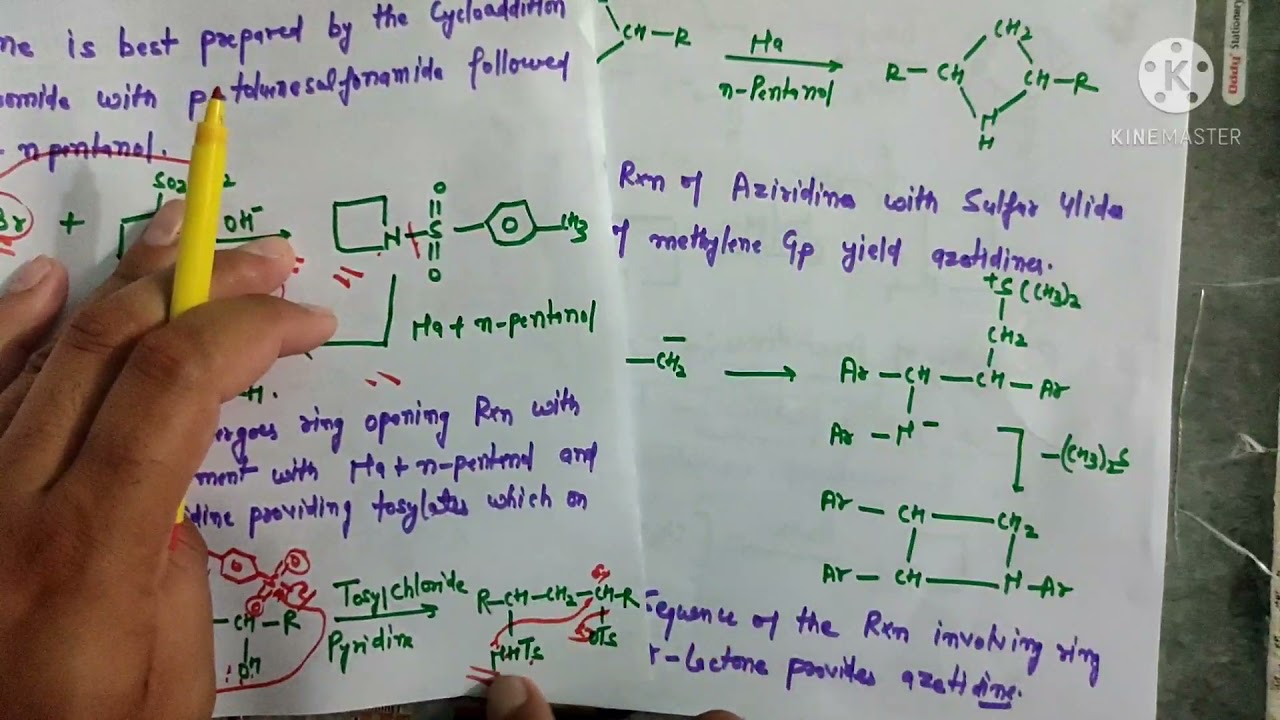 ne is best prepared by the Cycloaddition
omide with p-toluenesulfonamide followed
n pentanol.
Br + OH⁻
N S O O CH3
Na + n-pentanol
H.
ergoes ring opening Rxn with
ment with Na + n-pentanol and
idine providing tosylates which on
CH—R Tosylchloride Pyridine R—CH—CH2—CH—R
NHTs OTs
CH—R Na n-Pentanol R—CH CH2 CH—R
N
H
Rxn of Aziridine with Sulfur Ylide
of methylene Gp yield azetidines.
+S(CH3)2
CH2
—CH2 Ar—CH—CH—Ar
Ar—N⁻
—(CH3)2S
Ar—CH—CH2
Ar—CH—N—Ar
Sequence of the Rxn involving ring
r-Lactone provides azetidine.
K
KINEMASTER
Oddy Stationery